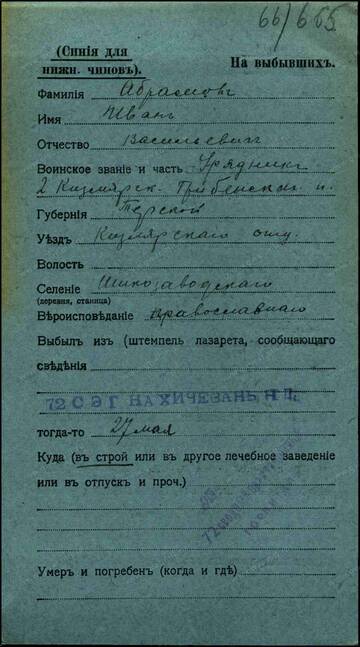 66/665
(Синія для
нижн. чиновъ).
На выбывшихъ.
Фамилія Абрамовъ
Имя Иванъ
Отчество Васильевичъ
Воинское званіе и часть Урядникъ
2 Кизлярск. Гребенской п.
Губернія Терской
Уѣздъ Кизлярскаго отд.
Волость
Селеніе Шелкозаводскаго
(деревня, станица)
Вѣроисповѣданіе православнаго
Выбылъ изъ (штемпель лазарета, сообщающаго
свѣдѣнія
72 СЭГ НАХИЧЕВАНЬ, Н Д.
тогда-то 27 мая
Куда (въ строй или въ другое лечебное заведеніе
или въ отпускъ и проч.)
Умеръ и погребенъ (когда и гдѣ)